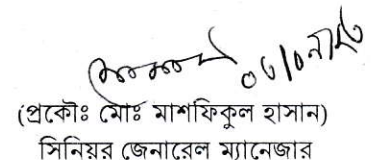 (প্রকৌঃ মোঃ মাশফিকুল হাসান)
সিনিয়র জেনারেল ম্যানেজার